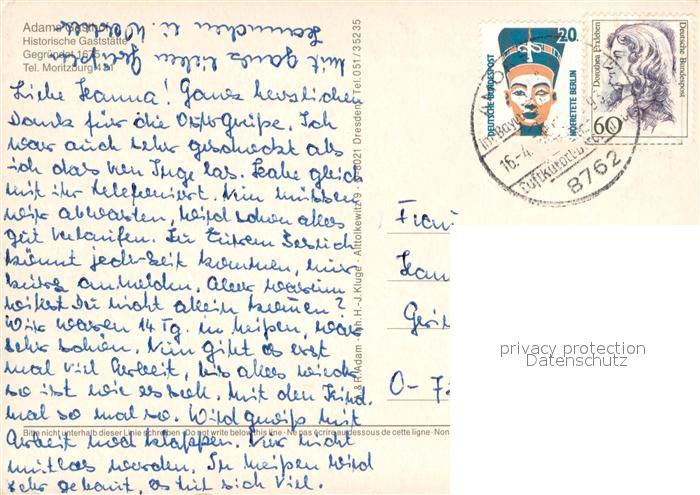 Adams Gasthof
Historische Gaststätte
Gegründet 1675
Tel. Moritzburg 4
Liebe Hanna! Ganz herzlichen
Dank für die Ostergrüße. Ich
war auch sehr geschockt als
ich das von Inge las. Habe gleich
mit ihr telefoniert. Nun müssen
wir abwarten, wird schon alles
gut verlaufen. Zu Eurem Besuch
könnt jederzeit kommen, nur
kurz anmelden. Aber warum
willst Du nicht allein kommen?
Wir waren 14 Tg. in Meißen, war
sehr schön. Nun gibt es erst
mal viel Arbeit, bis alles wieder
so ist wie es soll. Mit den Kind.
mal so mal so. Wird gewiß mit
Arbeit noch klappen. Nur nicht
mutlos werden. In Meißen wird
sehr gebaut, es tut sich viel.
Mit ganz lieben Grüßen
Hannchen u. Walter
A. & R. Adam · Inh. H.-J. Kluge · Alttolkewitz 9 · O-8021 Dresden · Tel. 051/35235
Bitte nicht unterhalb dieser Linie schreiben · Do not write below this line · Ne pas écrire au-dessous de cette ligne · Non
DEUTSCHE BUNDESPOST
20
NOFRETETE BERLIN
Dorothea Erxleben
Deutsche Bundespost
60
16.-4.
Luftkurort
8762
Frau
Han
Geri
O-7
privacy protection
Datenschutz